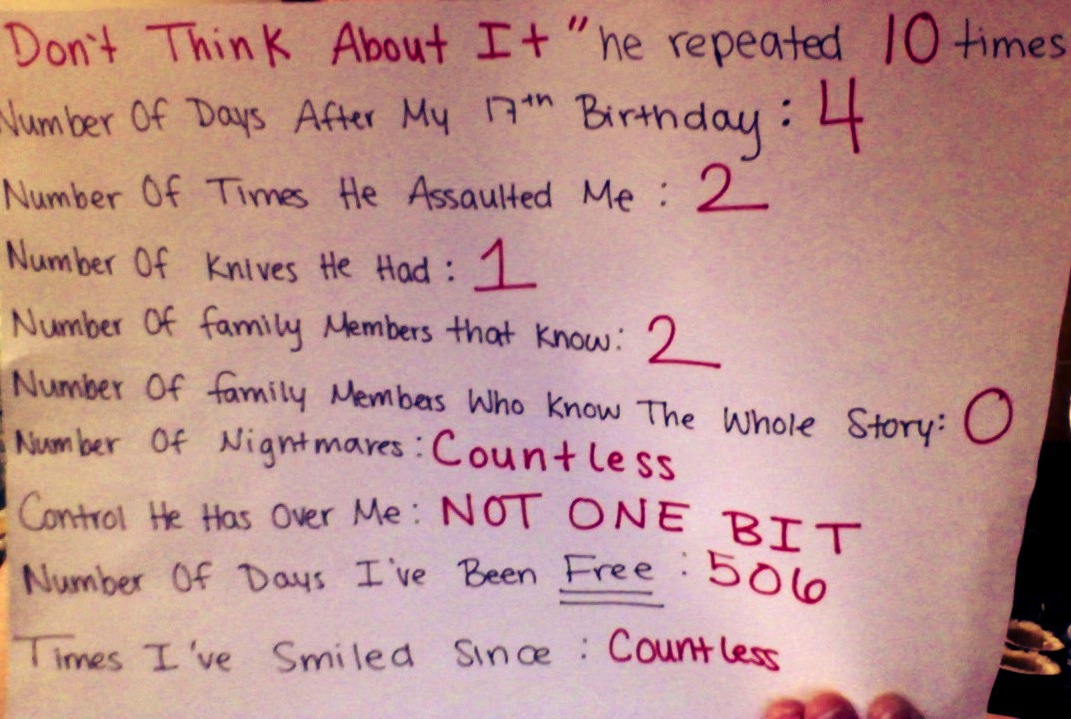 Don't Think About It" he repeated 10 times
Number Of Days After My 17th Birthday: 4
Number Of Times He Assaulted Me: 2
Number Of Knives He Had: 1
Number Of family Members that Know: 2
Number Of family Members Who Know The Whole Story: 0
Number Of Nightmares: Countless
Control He Has Over Me: NOT ONE BIT
Number Of Days I've Been Free: 506
Times I've Smiled Since: Countless